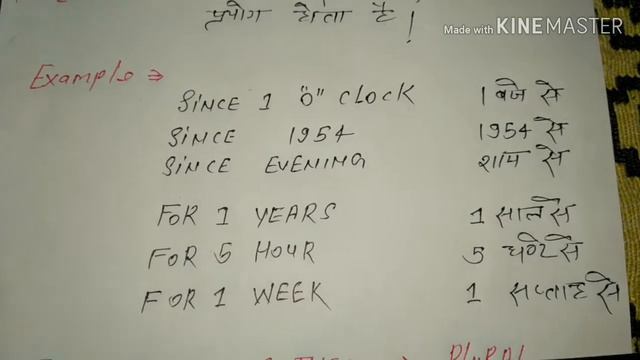 प्रयोग होता है!
Made with KINEMASTER
Example ⇒
SINCE 1 "O" CLOCK 1 बजे से
SINCE 1954 1954 से
SINCE EVENING शाम से
FOR 1 YEARS 1 साल से
FOR 5 HOUR 5 घण्टे से
FOR 1 WEEK 1 सप्ताह से